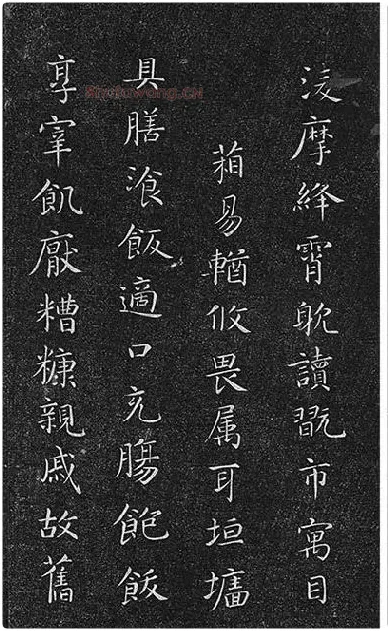 淩摩絳霄躭讀翫市寓目
葙易輶攸畏属耳垣墻
具膳湌飯適口充腸飽飫
享宰飢厭糟糠親戚故舊
Shufawang.CN